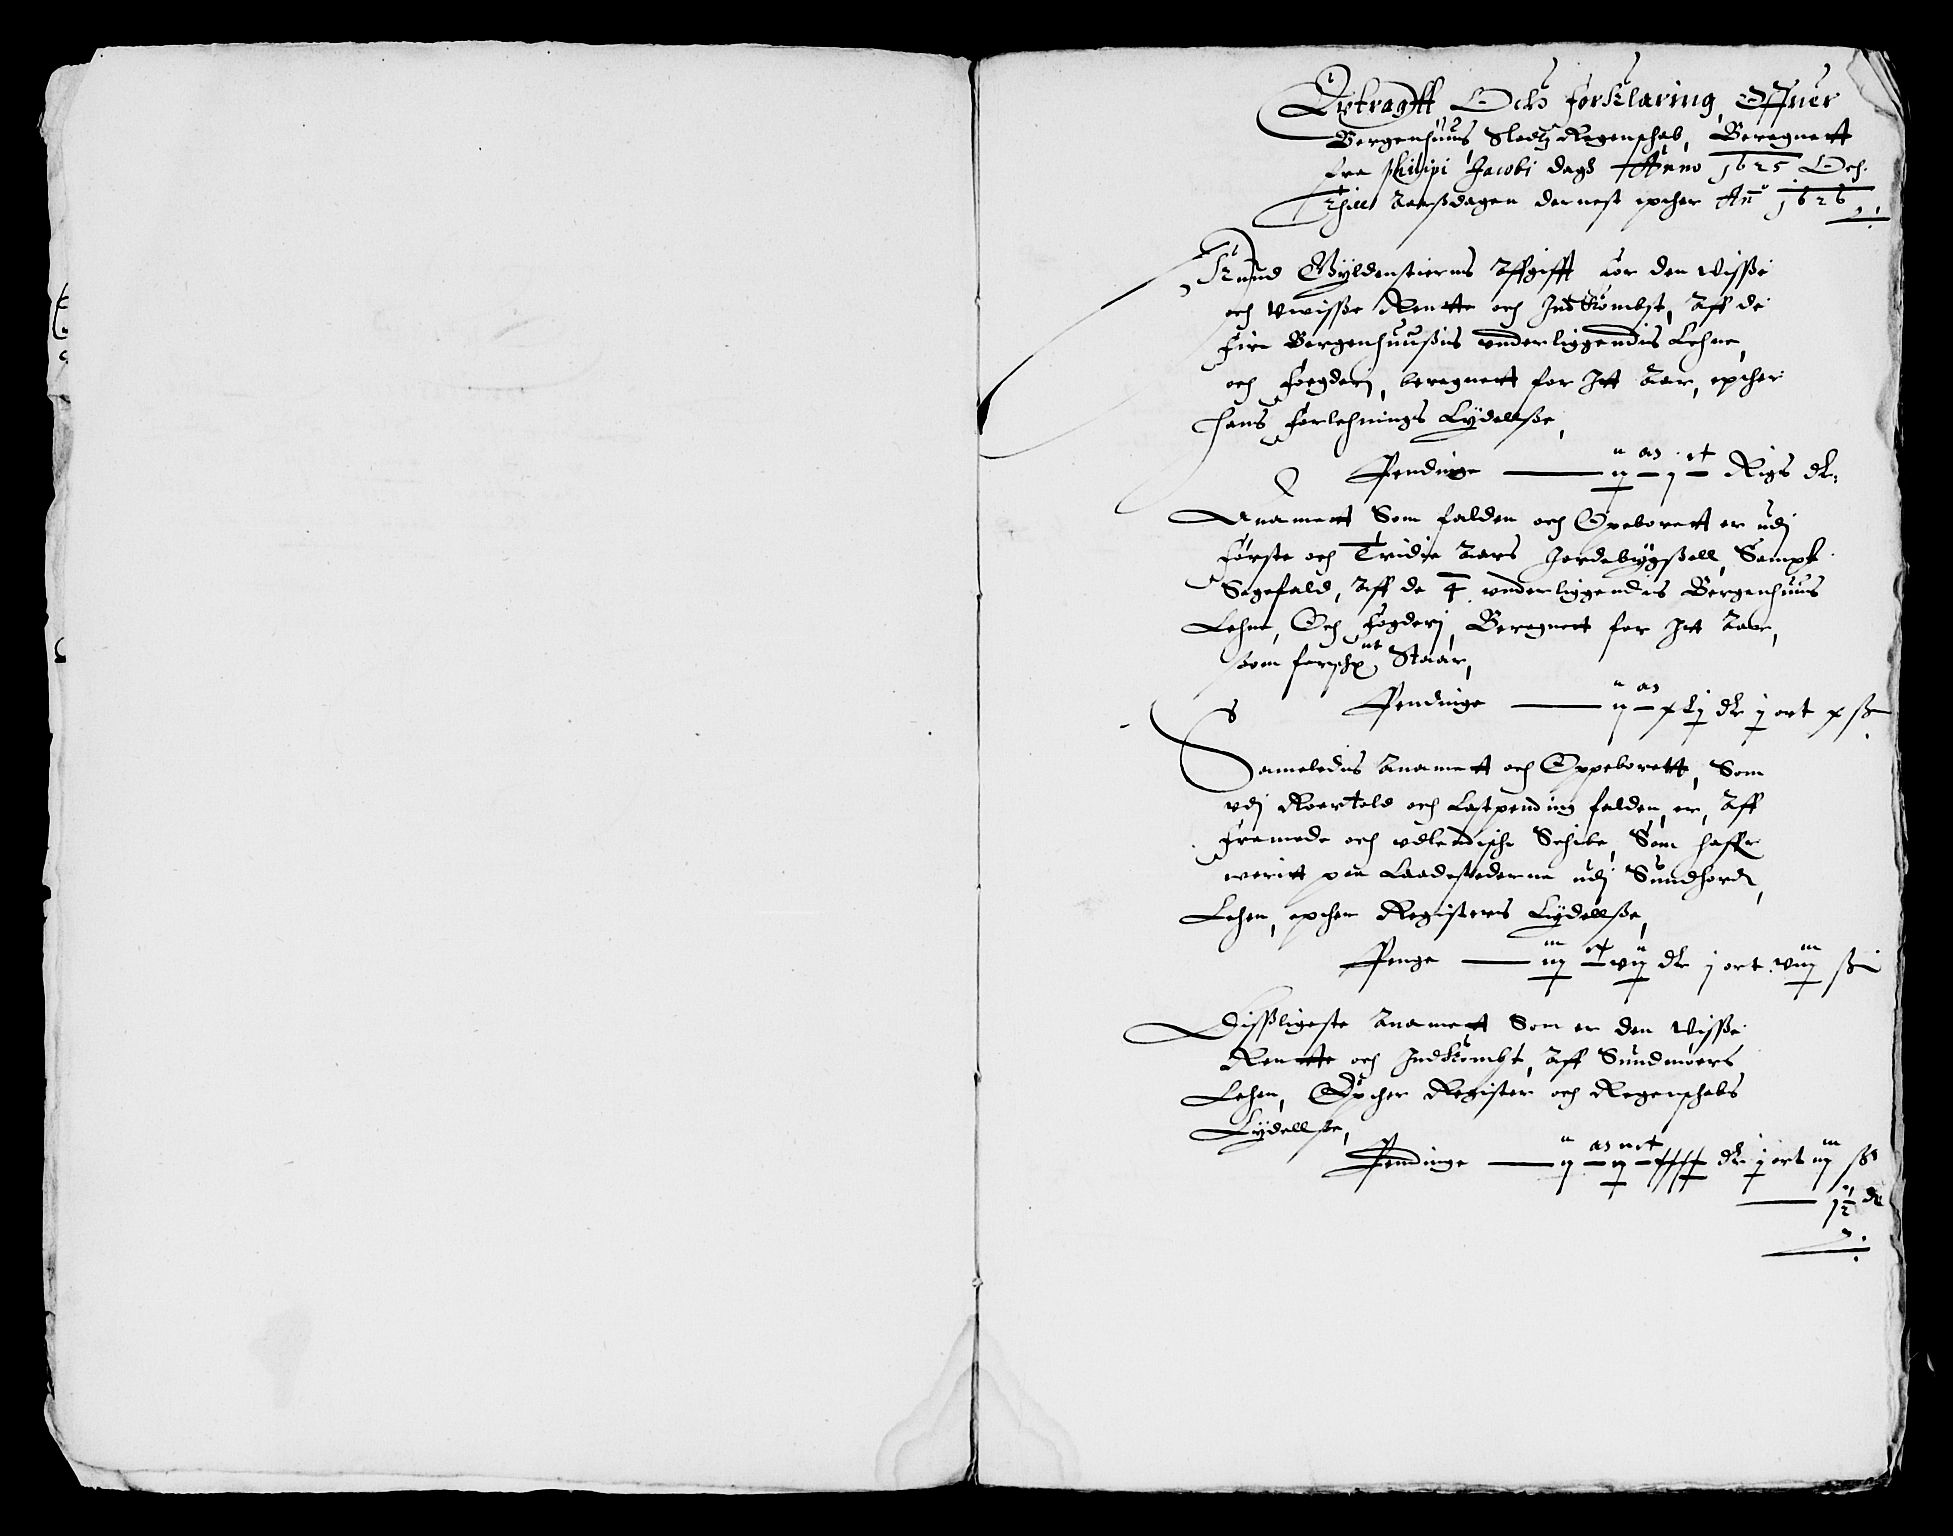 Extragtt Och forklaring Offuer
Bergenhuus Slodtz Regenschab, Beregnett
fra Philipi Jacobi dagh Anno 1625 Och
Thill Aarsdagen dernest epther Ano 1626
Knud Gyldenstierns Affgifft for den Wisse
och Vwisse Rentte och Indkombst, Aff de
fire Bergenhuusis underliggendis Lehne,
och fogderj, beregnett for Itt Aar, epther
hans forlehnings Lydellsse,
Pendinge Rigs dlr
Anamett Som falden och Opeborett er udj
første och Tridie Aars Jordebygsell, Sampt
Sagefald, Aff de 4 underliggendis Bergenhuus
Lehne, Och fogderj, Beregnett for Itt Aar,
som Staar,
Pendinge dlr j ort
Sameledis Anamett och Oppeborett, Som
vdj Roertold och Lastpending falden er, Aff
fremede och vdlendische Schibe, Som haffr
weritt paa Laadestederne udj Sundhordl
Lehen, epther Registers Lydellsse,
Penge dlr j ort viij ß
Disligeste Anamett Som er den Wisse
Rentte och Indkombst, Aff Sundmøers
Lehen, Epther Register och Regenschabs
Lydellsse,
Pendinge dlr j ort iij ß
1½